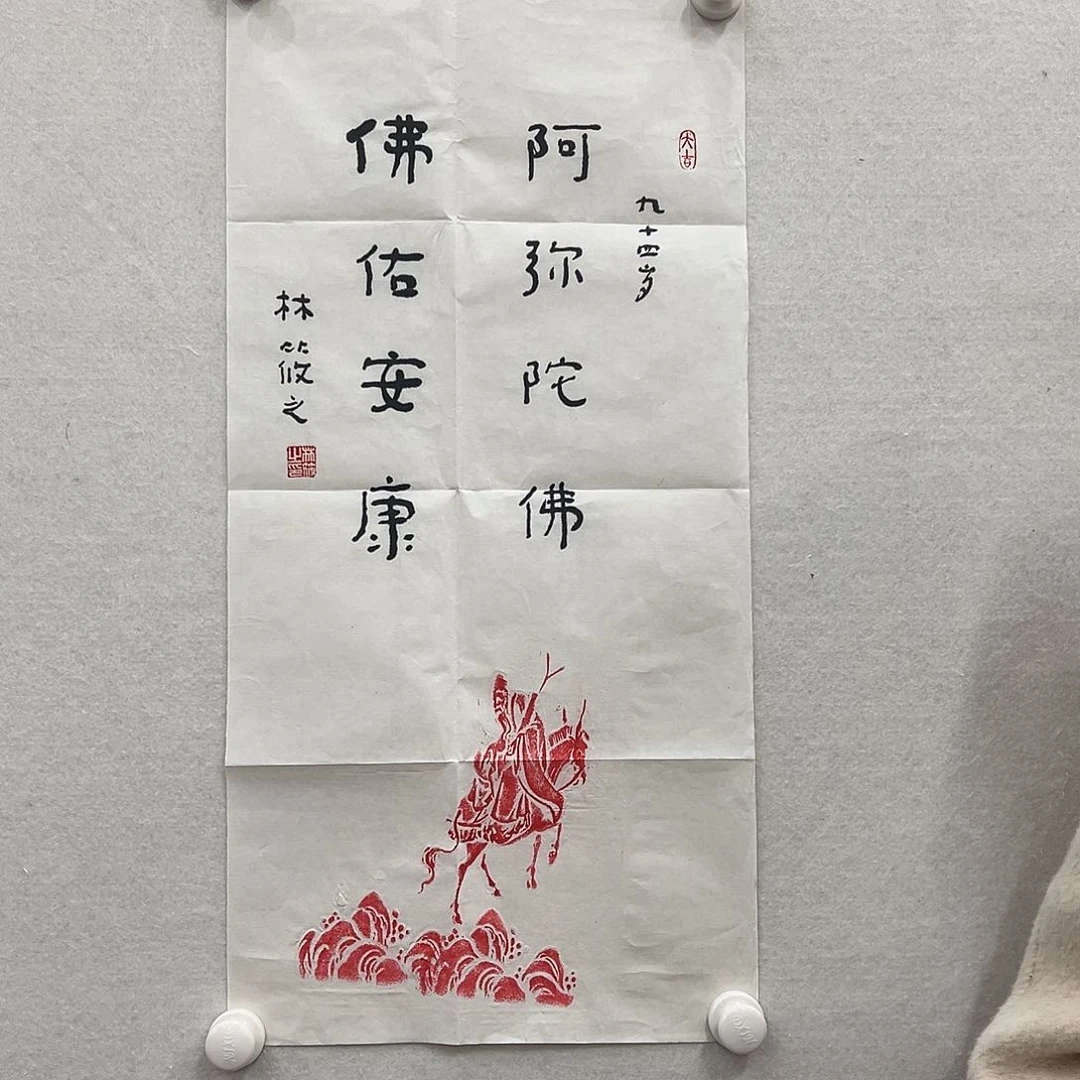 大吉
九十四岁
阿弥陀佛
佛佑安康
林筱之
林筱之印